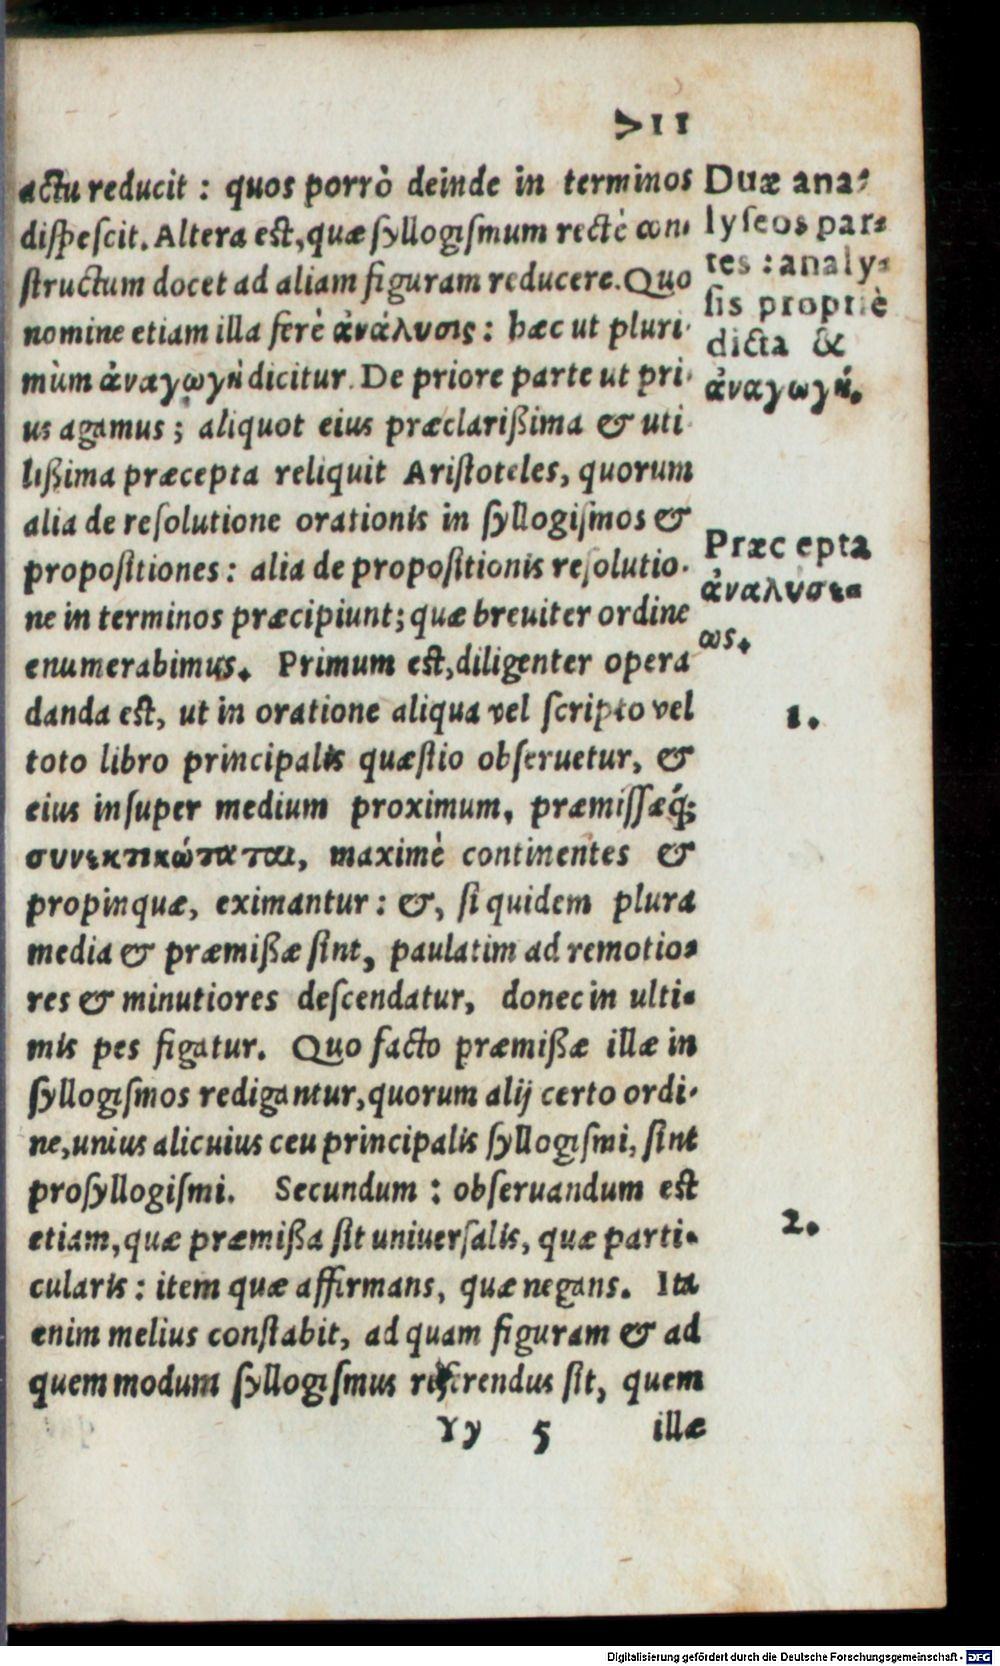 711
actu reducit : quos porrò deinde in terminos
dispescit. Altera est, quæ syllogismum rectè con-
structum docet ad aliam figuram reducere. Quo
nomine etiam illa ferè ἀνάλυσις : hæc ut pluri-
mùm ἀναγωγὴ dicitur. De priore parte ut pri-
us agamus ; aliquot eius præclarißima & uti-
lißima præcepta reliquit Aristoteles, quorum
alia de resolutione orationis in syllogismos &
propositiones : alia de propositionis resolutio-
ne in terminos præcipiunt; quæ breuiter ordine
enumerabimus. Primum est, diligenter opera
danda est, ut in oratione aliqua vel scripto vel
toto libro principalis quæstio obseruetur, &
eius insuper medium proximum, præmissæq́;
συνεκτικώταται, maximè continentes &
propinquæ, eximantur : &, si quidem plura
media & præmißæ sint, paulatim ad remotio-
res & minutiores descendatur, donec in ulti-
mis pes figatur. Quo facto præmißæ illæ in
syllogismos redigantur, quorum alij certo ordi-
ne, unius alicuius ceu principalis syllogismi, sint
prosyllogismi. Secundum : obseruandum est
etiam, quæ præmißa sit uniuersalis, quæ parti-
cularis : item quæ affirmans, quæ negans. Ita
enim melius constabit, ad quam figuram & ad
quem modum syllogismus referendus sit, quem
Yy 5 illæ
Duæ ana-
lyseos par-
tes : analy-
sis propriè
dicta &
ἀναγωγή.
Præcepta
ἀναλύσε-
ως.
1.
2.
Digitalisierung gefördert durch die Deutsche Forschungsgemeinschaft - DFG